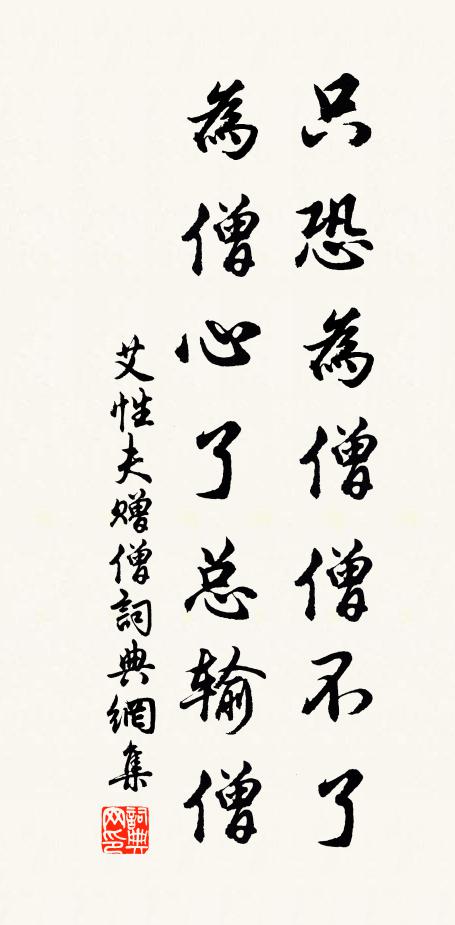 只恐為僧僧不了
為僧心了总输僧
艾性夫赠僧詞典網集
詞典网印